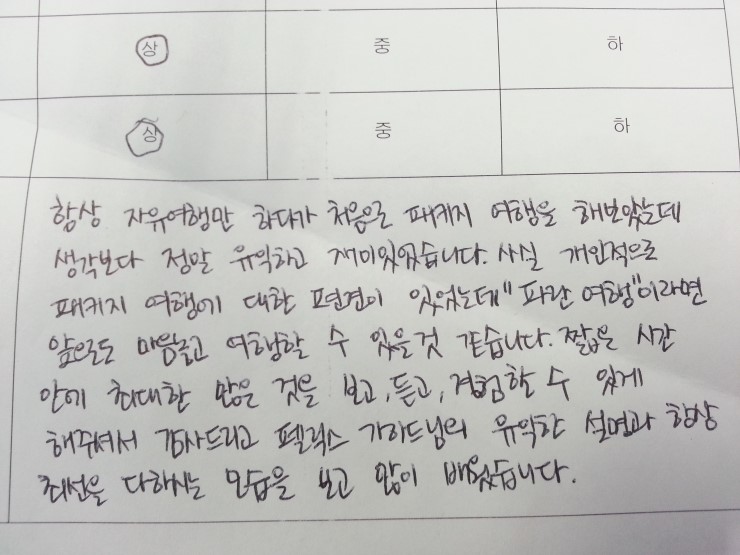 상 중 하
상 중 하
항상 자유여행만 하다가 처음으로 패키지 여행을 해보았는데
생각보다 정말 유익하고 재미있었습니다. 사실 개인적으로
패키지 여행에 대한 편견이 있었는데 "파란 여행"이라면
앞으로도 마음놓고 여행할 수 있을것 같습니다. 짧은 시간
안에 최대한 많은 것을 보고, 듣고, 경험할 수 있게
해주셔서 감사드리고 펠릭스 가이드님의 유익한 설명과 항상
최선을 다하시는 모습을 보고 많이 배웠습니다.